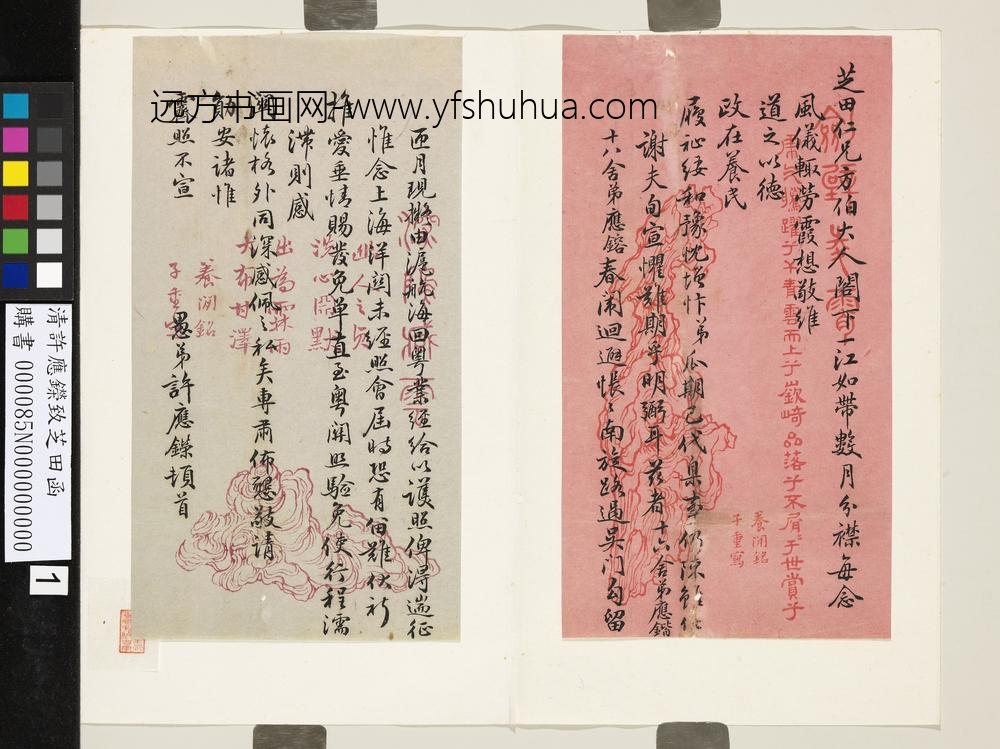 远方书画网-www.yfshuhua.com
芝田仁兄方伯大人閣下一江如帶數月分襟每念
風儀輒勞霞想敬維
道之以德
政在養民
履祉綏和豫忱增忭弟瓜期已代臬事仍陳
謝夫旬宣懼難期乎明弼耳茲者十六舍弟應鍇
十八舍弟應鎔春闈迴避悵悵南旋路過吳門勾留
匝月現擬由滬航海回粵業經給以護照俾得遄征
惟念上海洋關未經照會屆時恐有留難伏祈
推愛垂情賜發免單直至粵關照驗免使行程濡
滯則感
懷格外同深感佩之私矣專肅佈懇敬請
勛安諸惟
靄照不宣
愚弟許應鑅頓首
養閒銘
子重寫
出爲霖雨
大布甘澤
養閒銘
子重
清許應鑅致芝田函
購書 000085N000000000
1